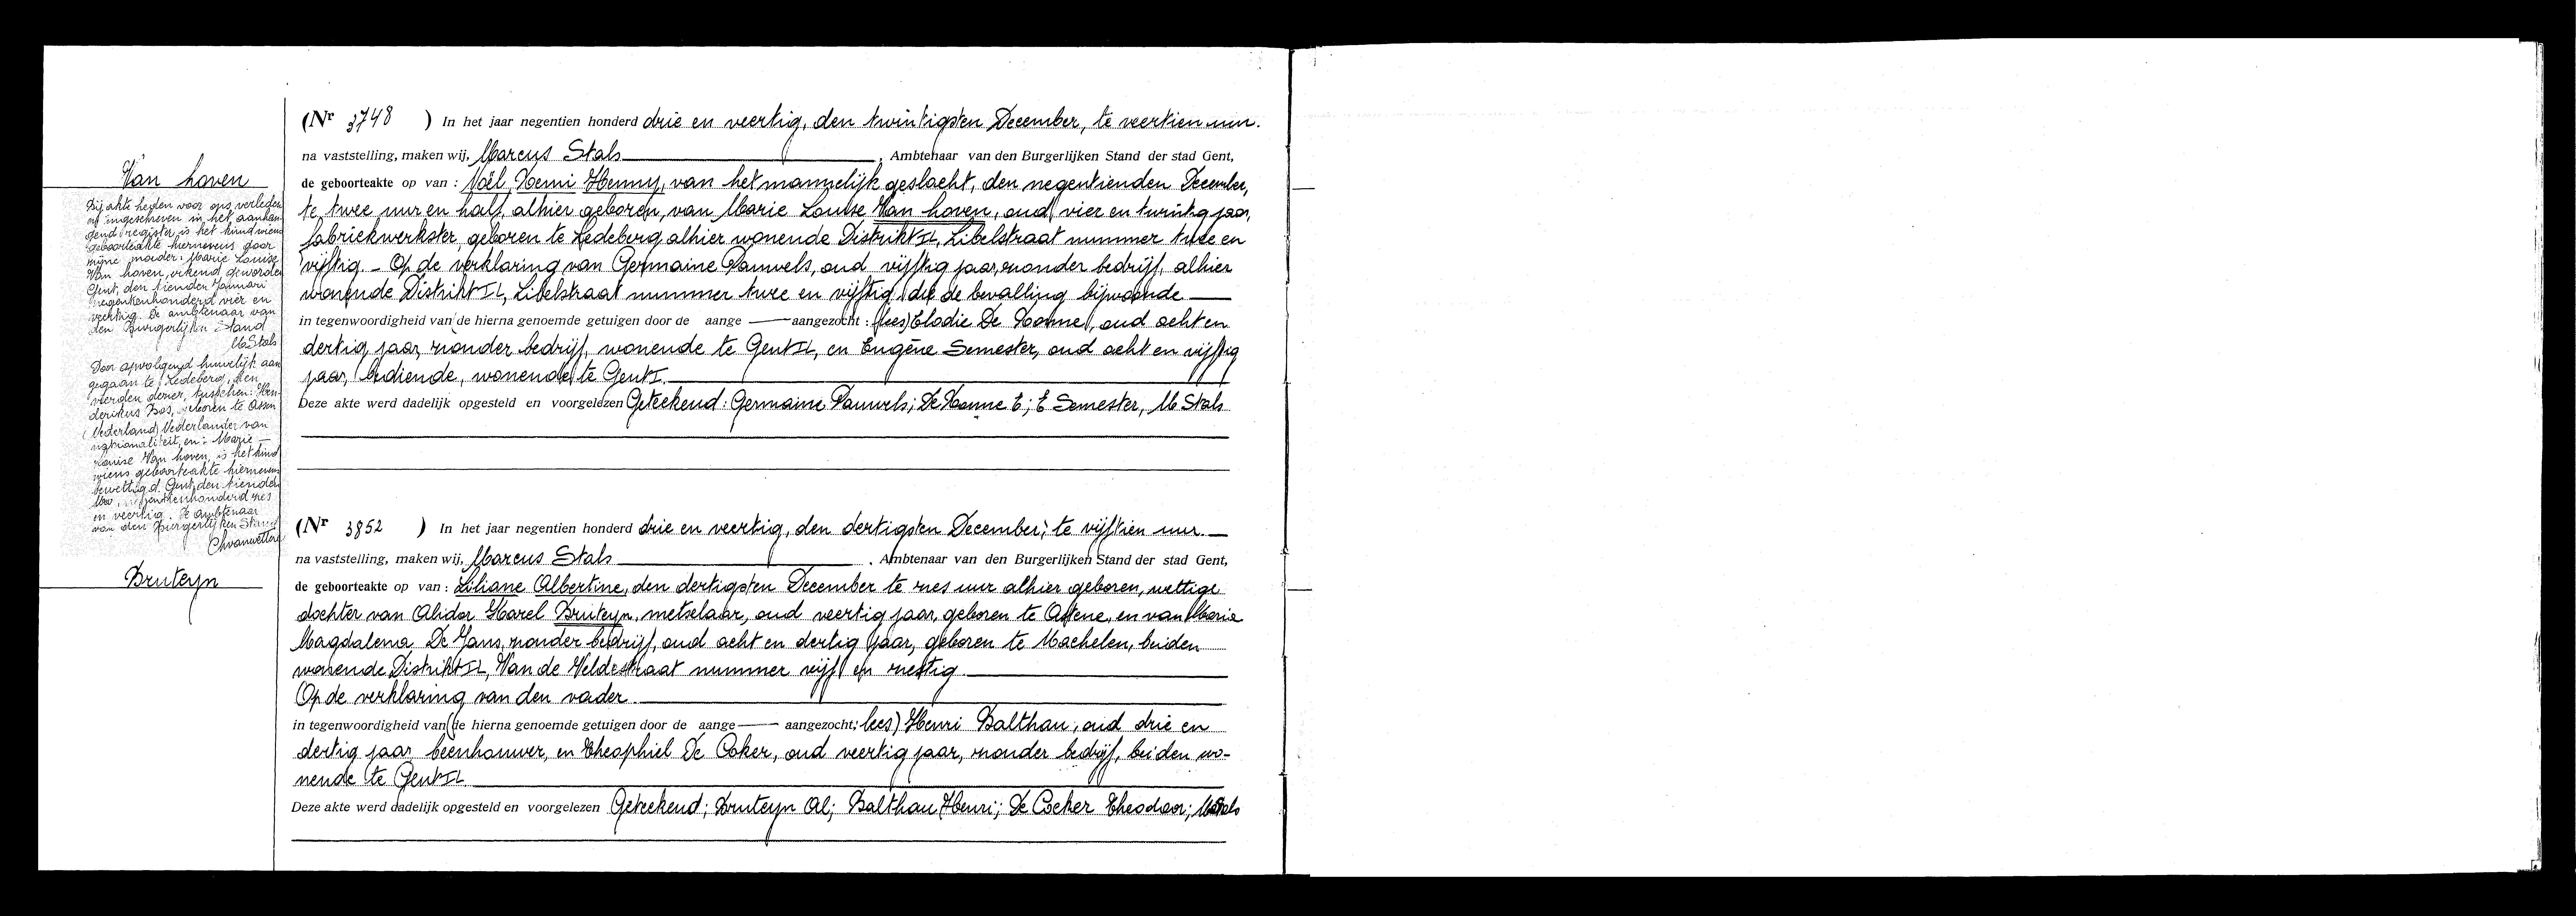 Van hoven
Bij akte heden voor ons verleden
en ingeschreven in het aanhan-
gend register is het kind wiens
geboorteakte hiernevens door
zijne moeder: Marie Louise
Van hoven, erkend geworden
Gent, den tienden Januari
negentienhonderd vier en
veertig. De ambtenaar van
den Burgerlijken Stand
M Stals
Door opvolgend huwelijk aan
gegaan te Ledeberg, den
vierden dezer, tusschen: Hen-
derikus Bos, geboren te Assen
(Nederland) Nederlander van
nationaliteit, en: Marie
Louise Van hoven, is het kind
wiens geboorteakte hiernevens
gewettigd. Gent, den tienden
negentienhonderd zes
en veertig. De ambtenaar
van den Burgerlijken Stand
Bruteyn
(Nr 3748 ) In het jaar negentien honderd drie en veertig, den twintigsten December, te veertien uur.
na vaststelling, maken wij, Marcus Stals , Ambtenaar van den Burgerlijken Stand der stad Gent,
de geboorteakte op van : Noël Remi Henny, van het mannelijk geslacht, den negentienden December,
te twee uur en half, alhier geboren, van Marie Louise Van hoven, oud vier en twintig jaar,
fabriekwerkster, geboren te Ledeberg alhier wonende Distrikt II, Libelstraat nummer twee en
vijftig. - Op de verklaring van Germaine Pauwels, oud vijftig jaar, zonder bedrijf, alhier
wonende Distrikt II, Libelstraat nummer twee en vijftig, die de bevalling bijwoonde
in tegenwoordigheid van de hierna genoemde getuigen door de aange — aangezocht : (lees) Elodie De Hanne, oud acht en
dertig jaar, zonder bedrijf, wonende te Gent II, en Eugène Semester, oud acht en vijftig
jaar, bediende, wonende te Gent I.
Deze akte werd dadelijk opgesteld en voorgelezen Geteekend: Germaine Pauwels; De Hanne E; E Semester, M Stals
(Nr 3852 ) In het jaar negentien honderd drie en veertig, den dertigsten December, te vijftien uur.
na vaststelling, maken wij, Marcus Stals . Ambtenaar van den Burgerlijken Stand der stad Gent,
de geboorteakte op van : Liliane Albertine, den dertigsten December te zes uur alhier geboren, wettige
dochter van Alidor Karel Bruteyn, metselaar, oud veertig jaar, geboren te Astene, en van Maria
Magdalena De Jans, zonder bedrijf, oud acht en dertig jaar, geboren te Machelen, beiden
wonende Distrikt II, Van de Veldestraat nummer vijf en zestig.
Op de verklaring van den vader.
in tegenwoordigheid van (de hierna genoemde getuigen door de aange — aangezocht: lees) Henri Balthau, oud drie en
dertig jaar, beenhouwer, en Theophiel De Coker, oud veertig jaar, zonder bedrijf, beiden wo-
nende te Gent II.
Deze akte werd dadelijk opgesteld en voorgelezen Geteekend; Bruteyn Al; Balthau Henri; De Coeker Theodoor; M Stals